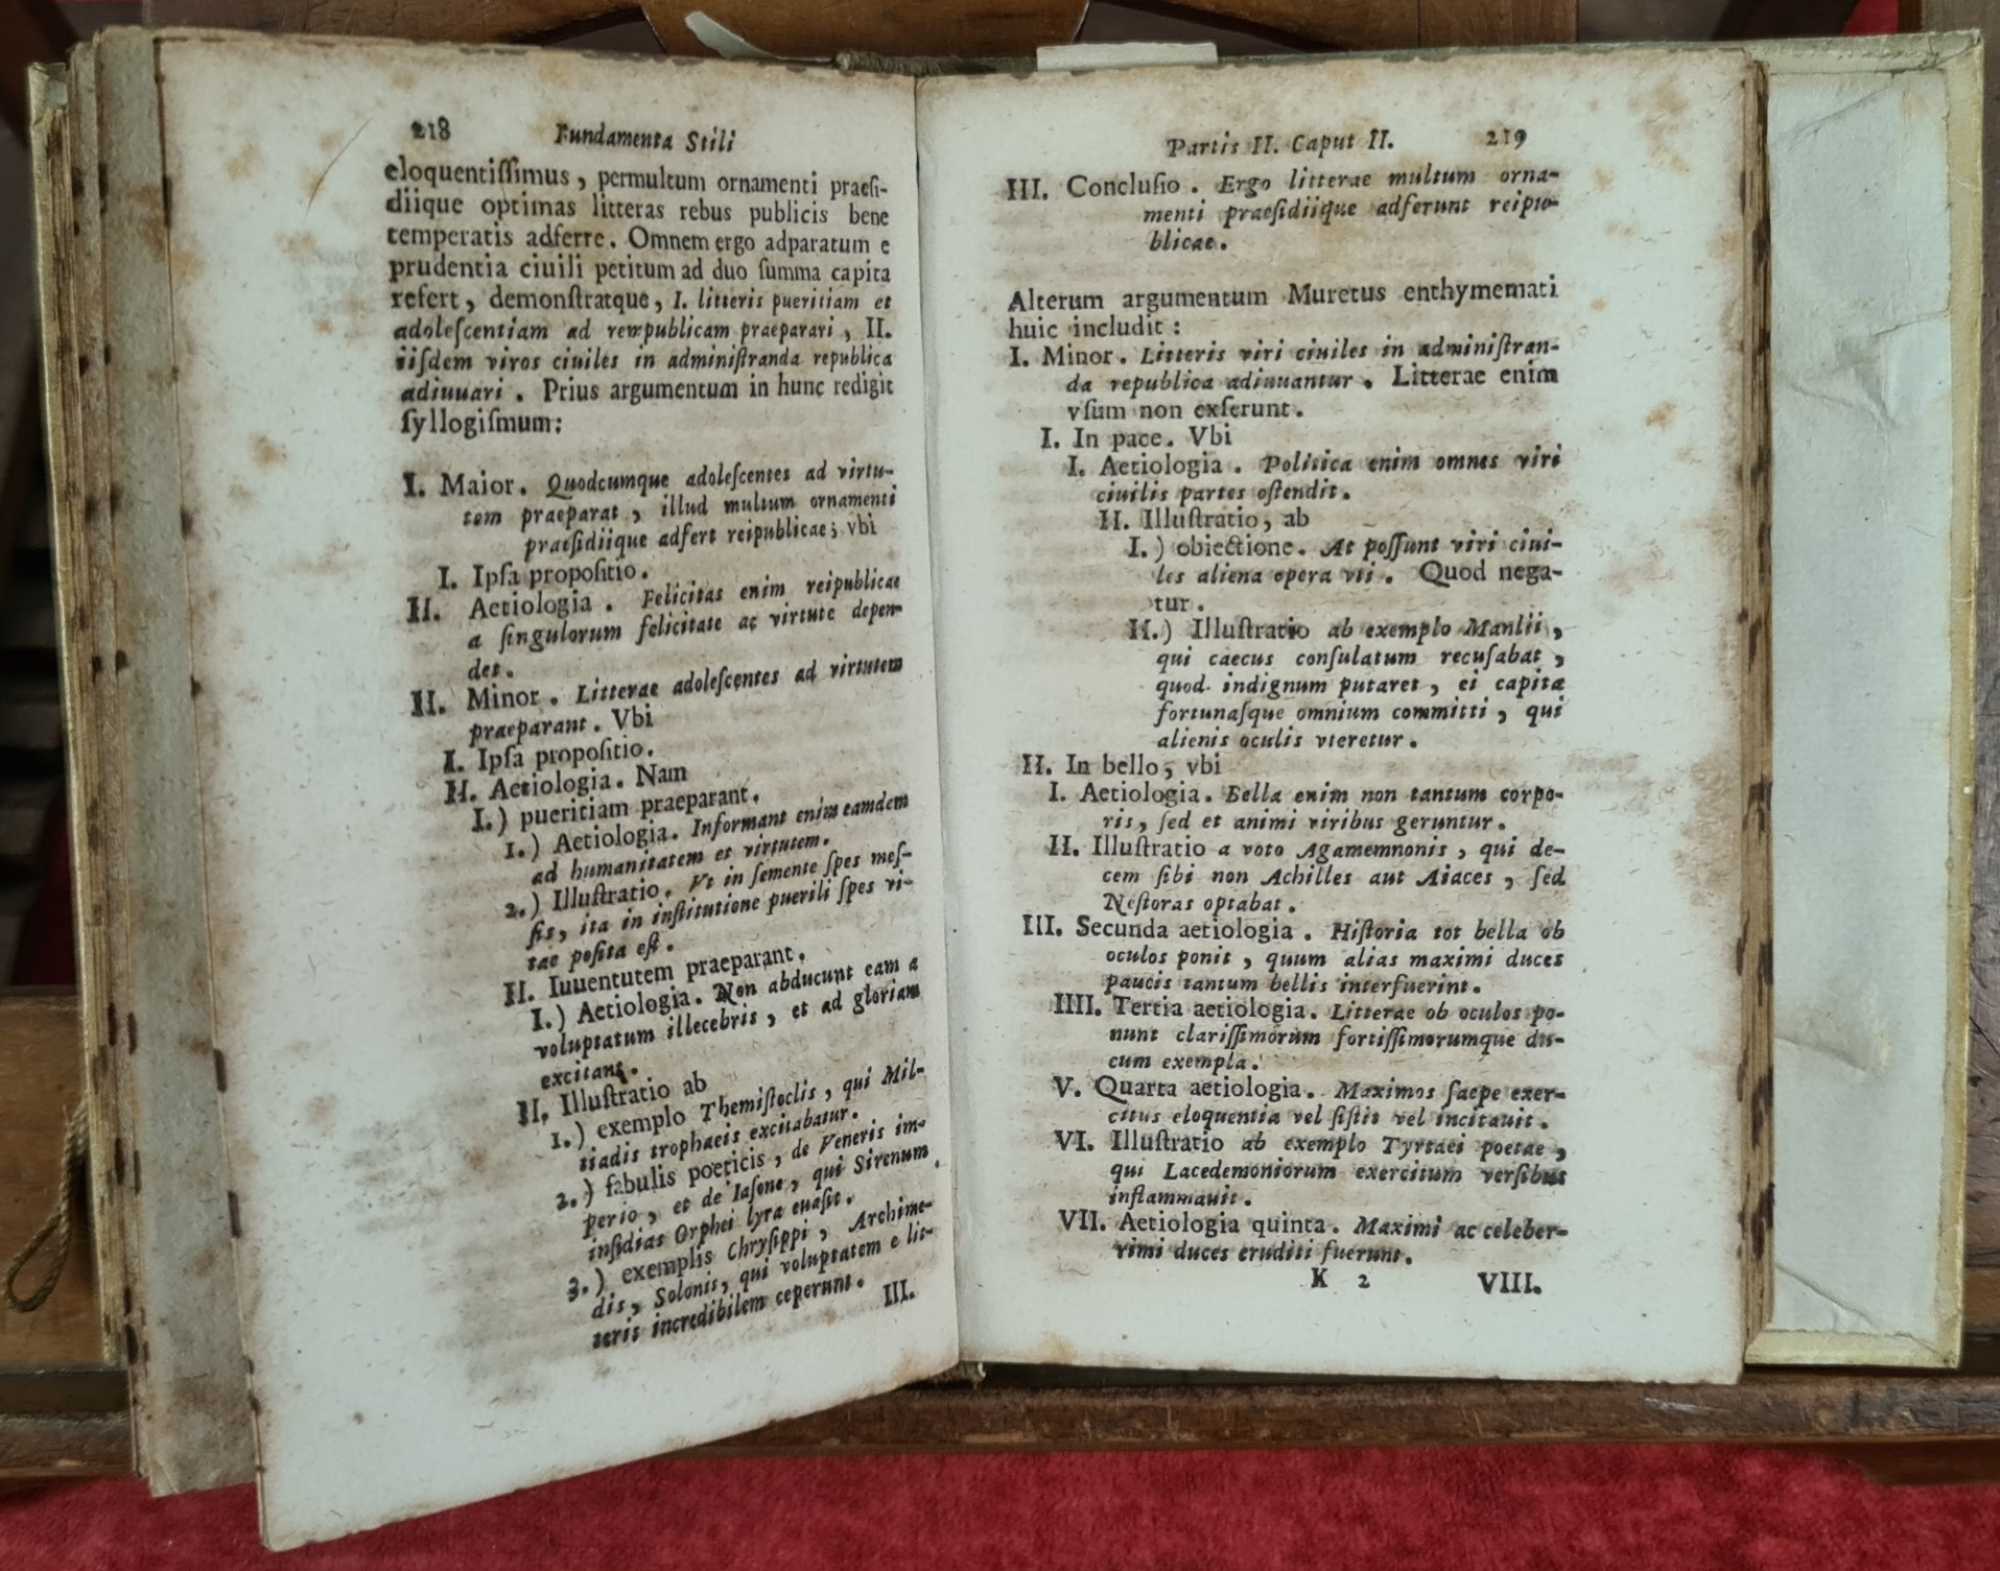 218 Fundamenta Stili
eloquentiſſimus, permultum ornamenti praeſi-
diique optimas litteras rebus publicis bene
temperatis adferre. Omnem ergo adparatum e
prudentia ciuili petitum ad duo ſumma capita
refert, demonſtratque, I. litteris pueritiam et
adoleſcentiam ad rempublicam praeparari, II.
iiſdem viros ciuiles in adminiſtranda republica
adiuuari. Prius argumentum in hunc redigit
ſyllogiſmum:
I. Maior. Quodcumque adoleſcentes ad virtu-
tem praeparat, illud multum ornamenti
praeſidiique adfert reipublicae; vbi
I. Ipſa propoſitio.
II. Aetiologia. Felicitas enim reipublicae
a ſingulorum felicitate ac virtute depen-
det.
II. Minor. Litterae adoleſcentes ad virtutem
praeparant. Vbi
I. Ipſa propoſitio.
II. Aetiologia. Nam
I.) pueritiam praeparant.
1.) Aetiologia. Informant enim eamdem
ad humanitatem et virtutem.
2.) Illuſtratio. Vt in ſemente ſpes meſ-
ſis, ita in inſtitutione puerili ſpes vi-
tae poſita eſt.
II. Iuuentutem praeparant.
I.) Aetiologia. Non abducunt eam a
voluptatum illecebris, et ad gloriam
excitant.
II. Illuſtratio ab
1.) exemplo Themiſtoclis, qui Mil-
tiadis trophaeis excitabatur.
2.) fabulis poeticis, de Veneris im-
perio, et de Iaſone, qui Sirenum
inſidias Orphei lyra euaſit.
3.) exemplis Chryſippi, Archime-
dis, Solonis, qui voluptatem e lit-
teris incredibilem ceperunt.
III.
Partis II. Caput II. 219
III. Concluſio. Ergo litterae multum orna-
menti praeſidiique adferunt reipu-
blicae.
Alterum argumentum Muretus enthymemati
huic includit:
I. Minor. Litteris viri ciuiles in adminiſtran-
da republica adiuuantur. Litterae enim
vſum non exſerunt.
I. In pace. Vbi
I. Aetiologia. Politica enim omnes viri
ciuilis partes oſtendit.
II. Illuſtratio, ab
I.) obiectione. At poſſunt viri ciui-
les aliena opera vti. Quod nega-
tur.
II.) Illuſtratio ab exemplo Manlii,
qui caecus conſulatum recuſabat,
quod indignum putaret, ei capita
fortunaſque omnium committi, qui
alienis oculis vteretur.
II. In bello, vbi
I. Aetiologia. Bella enim non tantum corpo-
ris, ſed et animi viribus geruntur.
II. Illuſtratio a voto Agamemnonis, qui de-
cem ſibi non Achilles aut Aiaces, ſed
Neſtoras optabat.
III. Secunda aetiologia. Hiſtoria tot bella ob
oculos ponit, quum alias maximi duces
paucis tantum bellis interfuerint.
IIII. Tertia aetiologia. Litterae ob oculos po-
nunt clariſſimorum fortiſſimorumque du-
cum exempla.
V. Quarta aetiologia. Maximos ſaepe exer-
citus eloquentia vel ſiſtit vel incitauit.
VI. Illuſtratio ab exemplo Tyrtaei poetae,
qui Lacedemoniorum exercitum verſibus
inflammauit.
VII. Aetiologia quinta. Maximi ac celeber-
rimi duces eruditi fuerunt.
K 2 VIII.